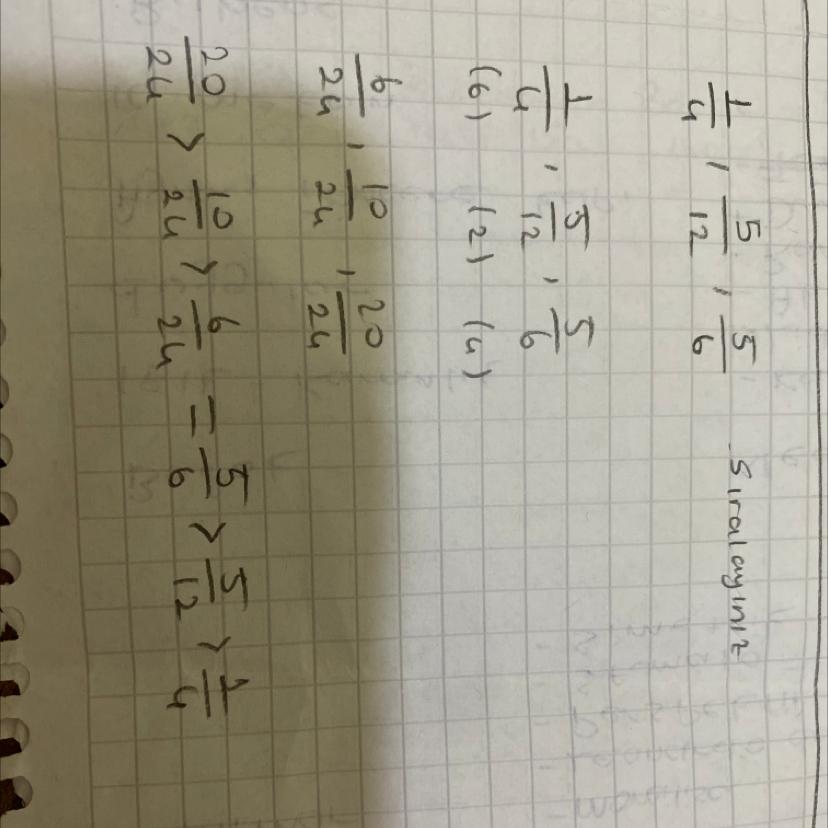 1/4 , 5/12 , 5/6 Sıralayınız
1/4 , 5/12 , 5/6
(6) (2) (4)
6/24 , 10/24 , 20/24
20/24 > 10/24 > 6/24 = 5/6 > 5/12 > 1/4